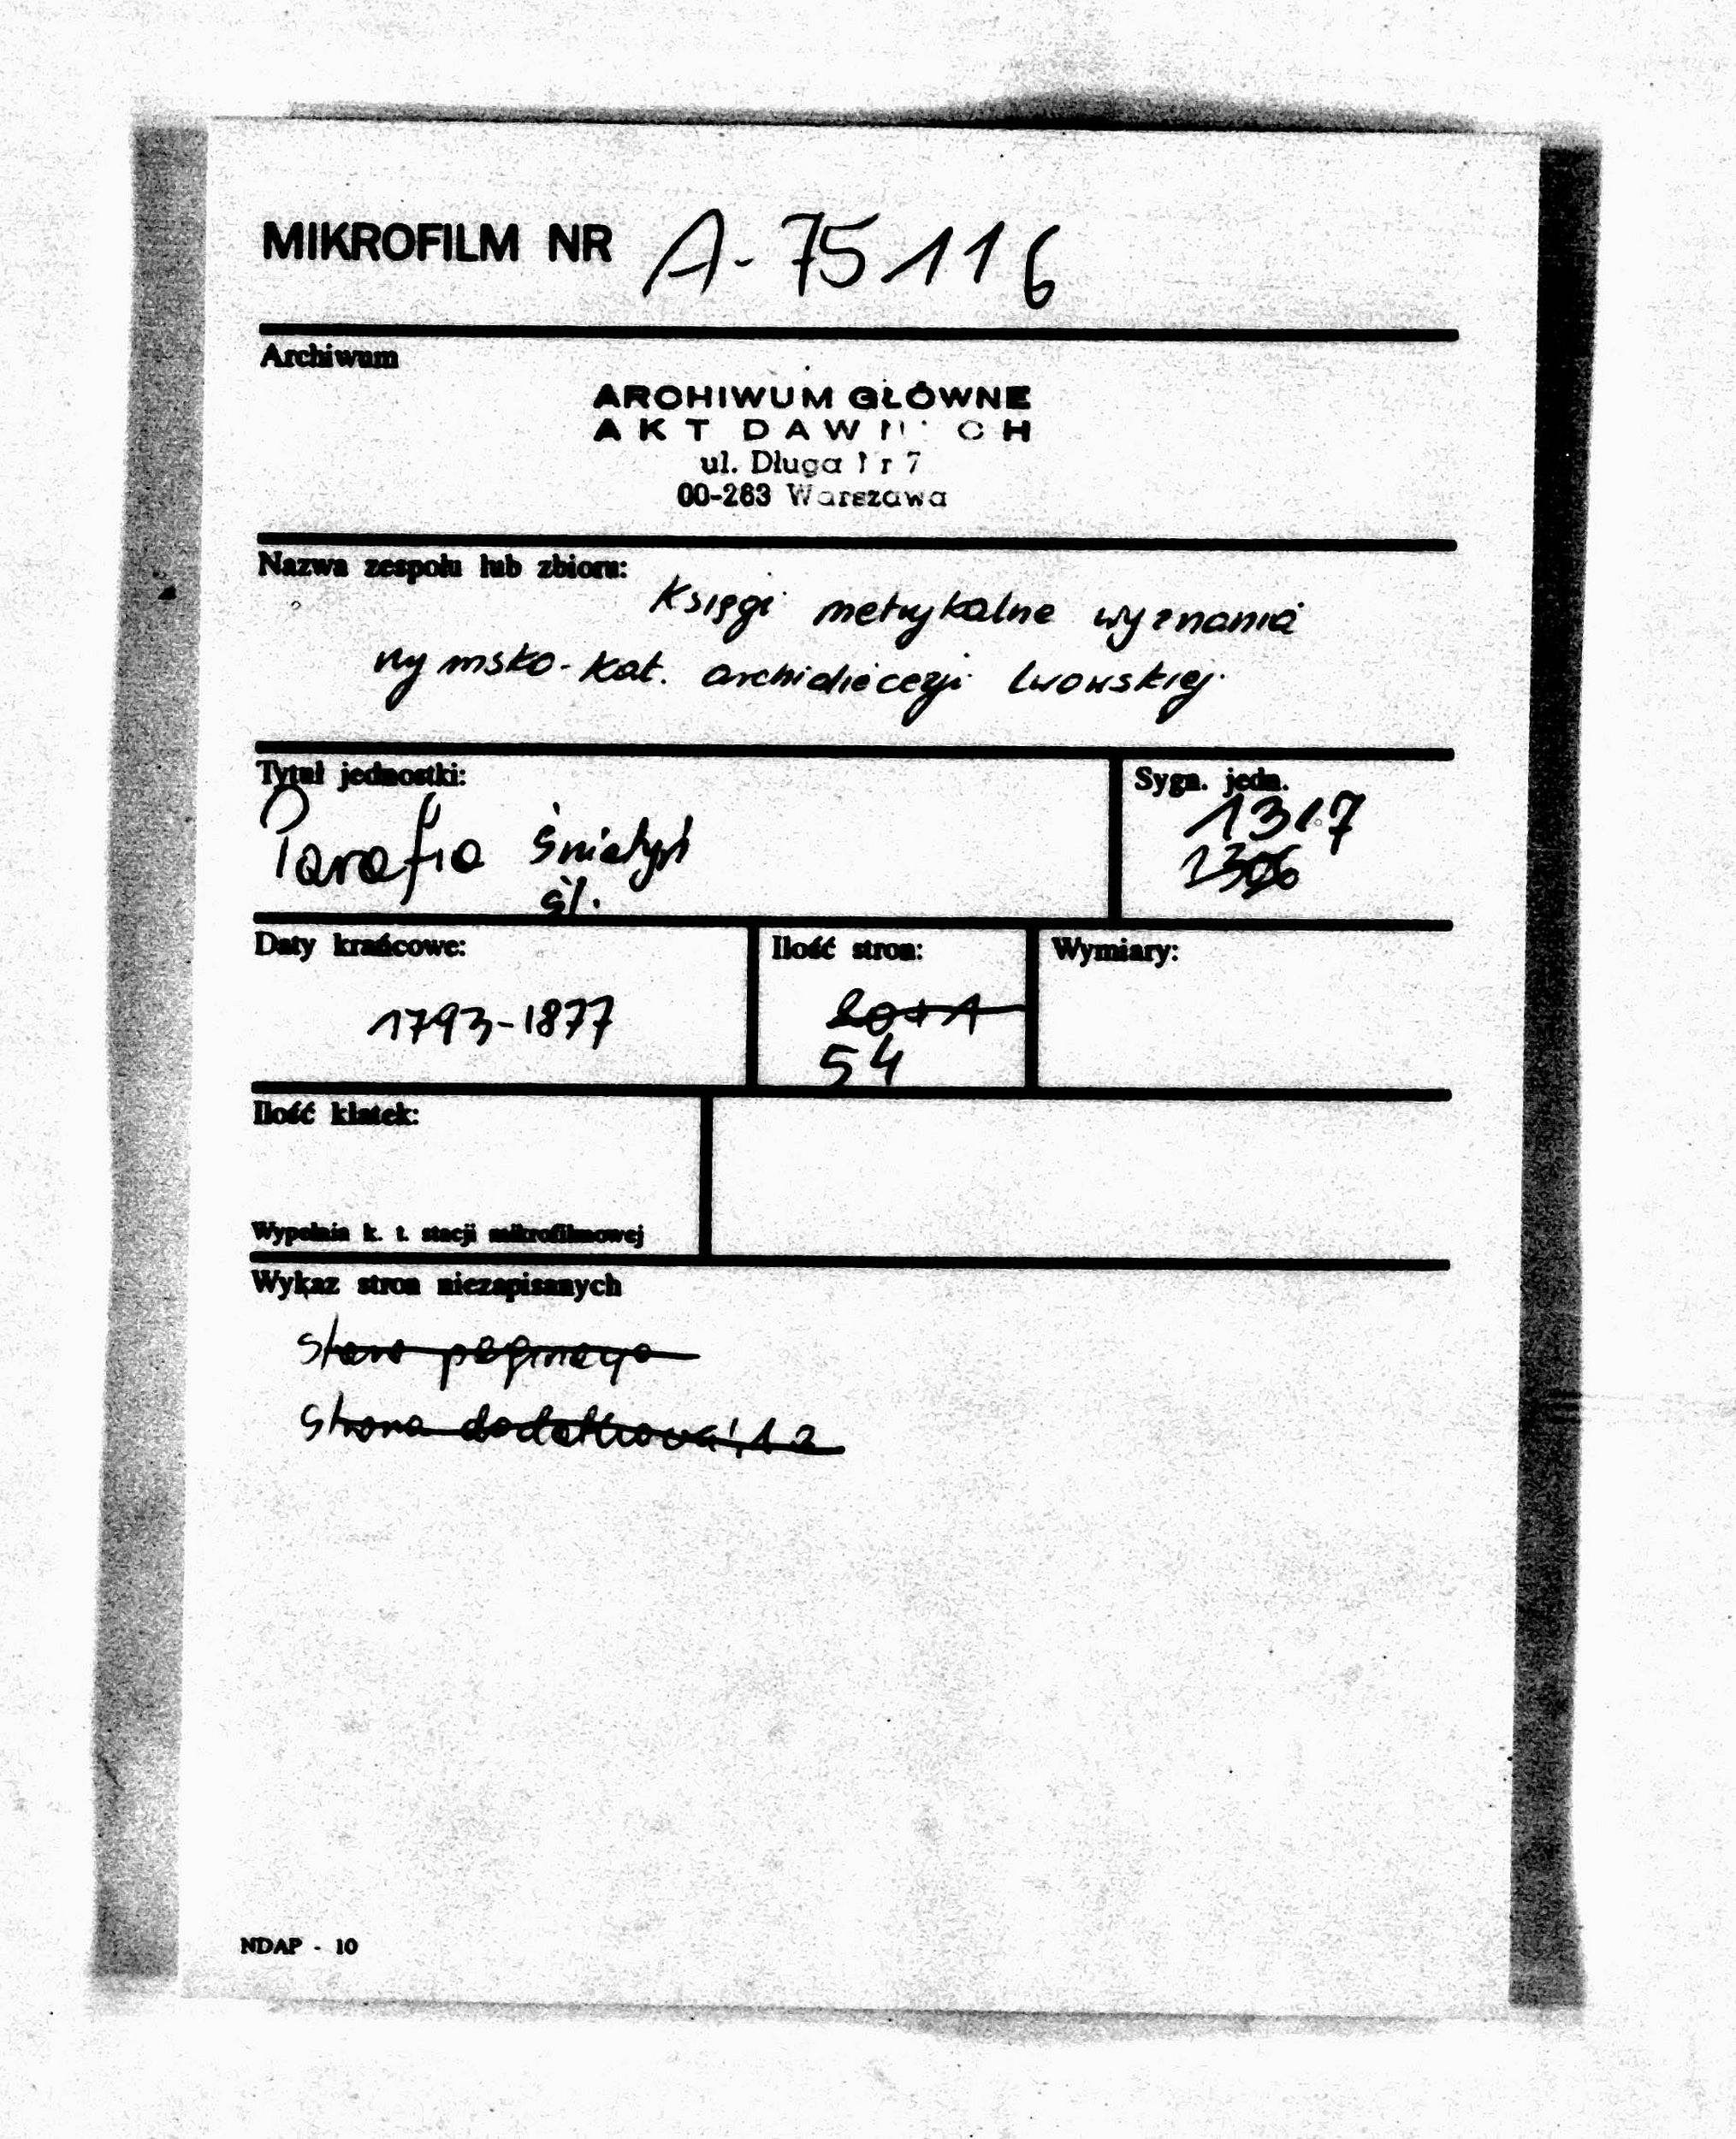 MIKROFILM NR A-75116
Archiwum
ARCHIWUM GŁÓWNE
AKT DAWNYCH
ul. Długa Nr 7
00-263 Warszawa
Nazwa zespołu lub zbioru:
Księgi metrykalne wyznania
rzymsko-kat. archidiecezji Lwowskiej.
Tytuł jednostki:
Sygn. jedn.
1317
Parafia Śniatyń
1306
śl.
Daty krańcowe:
Ilość stron:
Wymiary:
1793-1877
20+1
54
Ilość klatek:
Wypełnia k. t. stacji mikrofilmowej
Wykaz stron niezapisanych
stara paginacja
strona dodatkowa: 1 a
NDAP - 10